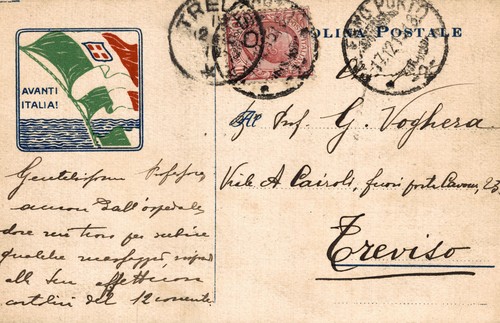 AVANTI
ITALIA!
TREVISO
CARTOLINA POSTALE
17.12.1
Al Prof. G. Voghera
Viale A. Cairoli, fuori porta Cavour, 23
Treviso
Gentilissimo Professore,
ancora dall'ospedale
dove mi trovo per subire
qualche
alla Sua
cartolina del 12 corrente